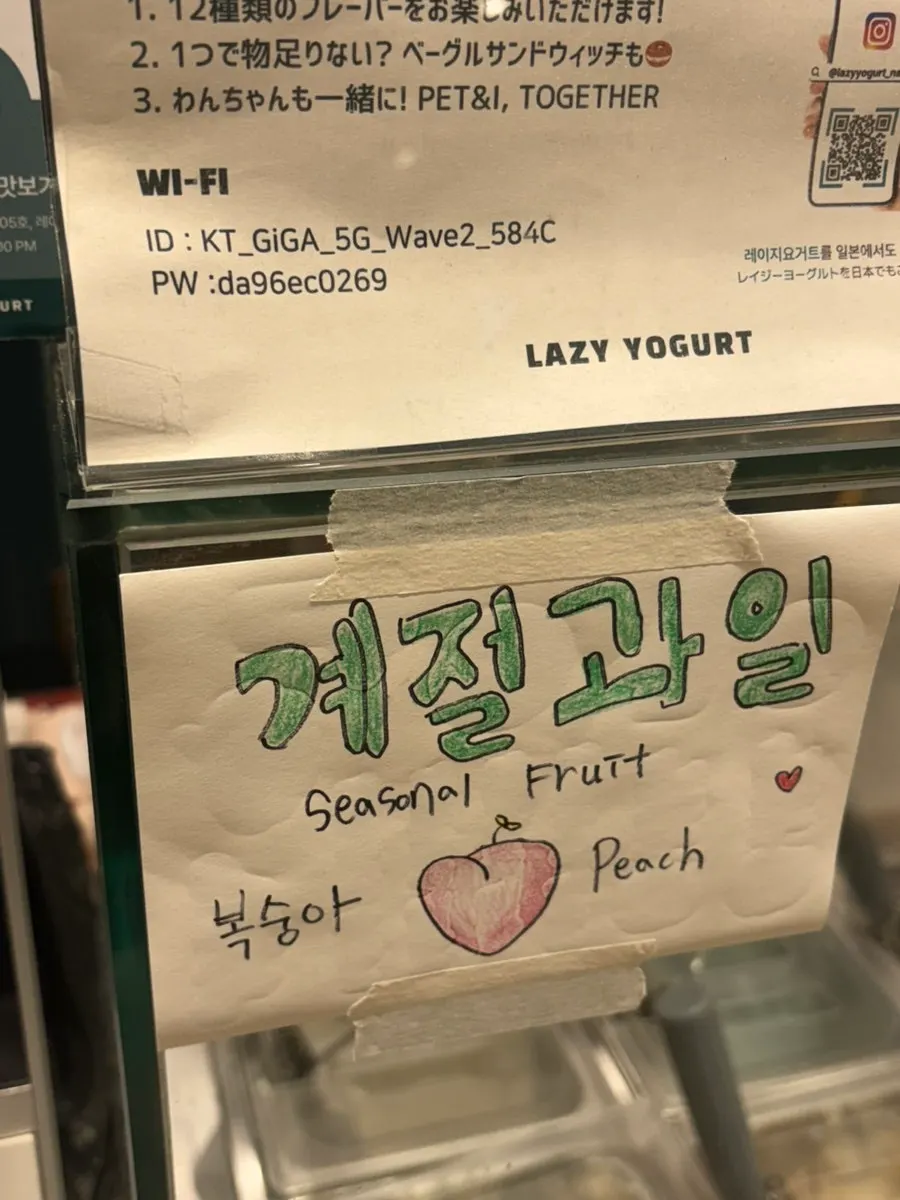 1. 12種類のフレーバーをお楽しみいただけます!
2. 1つで物足りない? ベーグルサンドウィッチも
3. わんちゃんも一緒に! PET&I, TOGETHER
@lazyyogurt_na
WI-FI
ID : KT_GiGA_5G_Wave2_584C
PW :da96ec0269
레이지요거트를 일본에서도
レイジーヨーグルトを日本でも
LAZY YOGURT
맛보기
05호, 레이
00 PM
URT
계절과일
Seasonal Fruit
복숭아 Peach